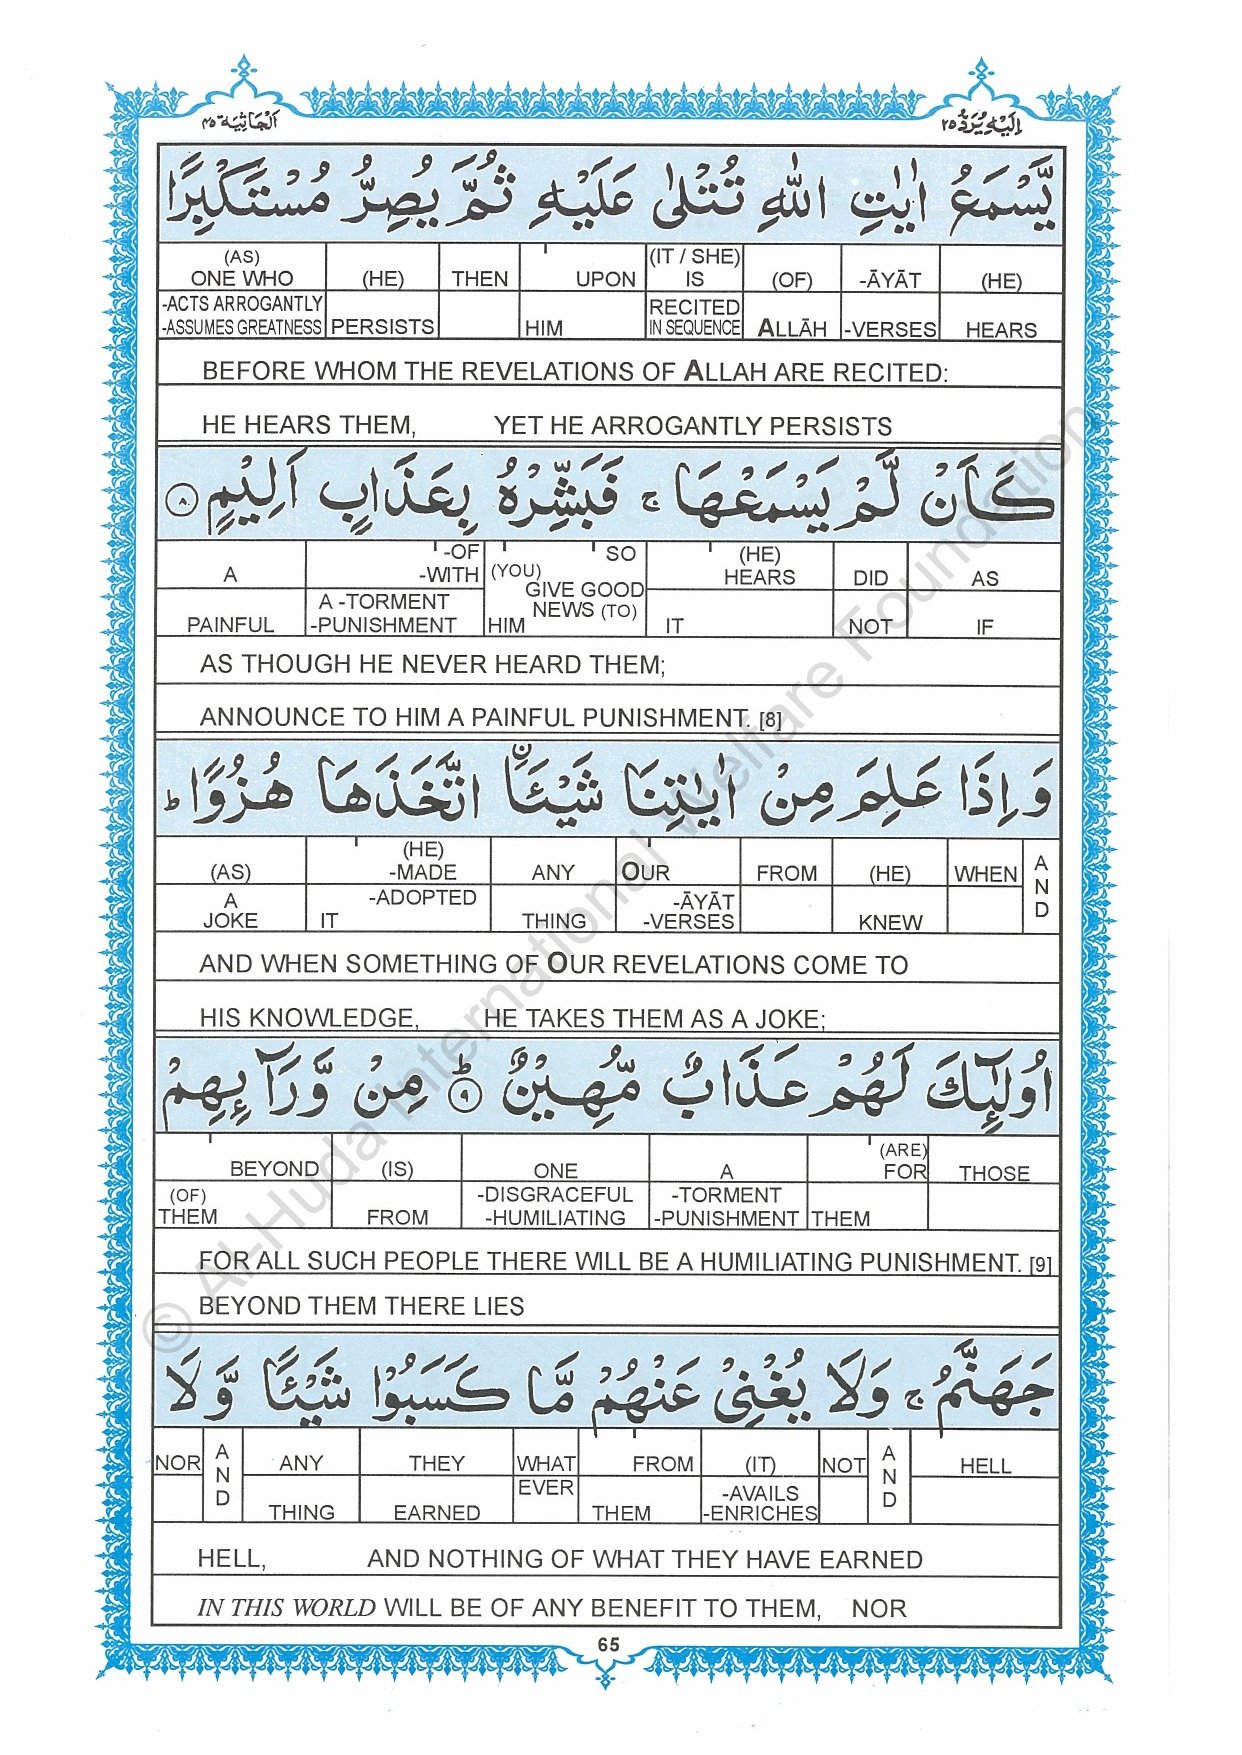 اَلْجَاثِيَة ٤٥
اِلَيْهِ يُرَدُّ ٢٥
يَّسْمَعُ اٰيٰتِ اللّٰهِ تُتْلٰى عَلَيْهِ ثُمَّ يُصِرُّ مُسْتَكْبِرًا
(AS) (IT / SHE)
ONE WHO (HE) THEN UPON IS (OF) -ĀYĀT (HE)
-ACTS ARROGANTLY RECITED
-ASSUMES GREATNESS PERSISTS HIM IN SEQUENCE ALLĀH -VERSES HEARS
BEFORE WHOM THE REVELATIONS OF ALLAH ARE RECITED:
HE HEARS THEM, YET HE ARROGANTLY PERSISTS
كَاَنْ لَّمْ يَسْمَعْهَا ۚ فَبَشِّرْهُ بِعَذَابٍ اَلِيْمٍ ٨
-OF SO (HE)
A -WITH (YOU) GIVE GOOD HEARS DID AS
A -TORMENT NEWS (TO)
PAINFUL -PUNISHMENT HIM IT NOT IF
AS THOUGH HE NEVER HEARD THEM;
ANNOUNCE TO HIM A PAINFUL PUNISHMENT. [8]
وَاِذَا عَلِمَ مِنْ اٰيٰتِنَا شَيْـًٔا ۨاتَّخَذَهَا هُزُوًا ؕ
(HE) A
(AS) -MADE ANY OUR FROM (HE) WHEN N
A -ADOPTED -ĀYĀT D
JOKE IT THING -VERSES KNEW
AND WHEN SOMETHING OF OUR REVELATIONS COME TO
HIS KNOWLEDGE, HE TAKES THEM AS A JOKE;
اُولٰٓئِكَ لَهُمْ عَذَابٌ مُّهِيْنٌ ؕ ٩ مِنْ وَّرَآئِهِمْ
(ARE)
BEYOND (IS) ONE A FOR THOSE
(OF) -DISGRACEFUL -TORMENT
THEM FROM -HUMILIATING -PUNISHMENT THEM
FOR ALL SUCH PEOPLE THERE WILL BE A HUMILIATING PUNISHMENT. [9]
BEYOND THEM THERE LIES
جَهَنَّمُ ۚ وَلَا يُغْنِىْ عَنْهُمْ مَّا كَسَبُوْا شَيْـًٔا وَّلَا
NOR AND ANY THEY WHAT FROM (IT) NOT AND HELL
EVER -AVAILS
THING EARNED THEM -ENRICHES
HELL, AND NOTHING OF WHAT THEY HAVE EARNED
IN THIS WORLD WILL BE OF ANY BENEFIT TO THEM, NOR
65
© Al-Huda International Welfare Foundation